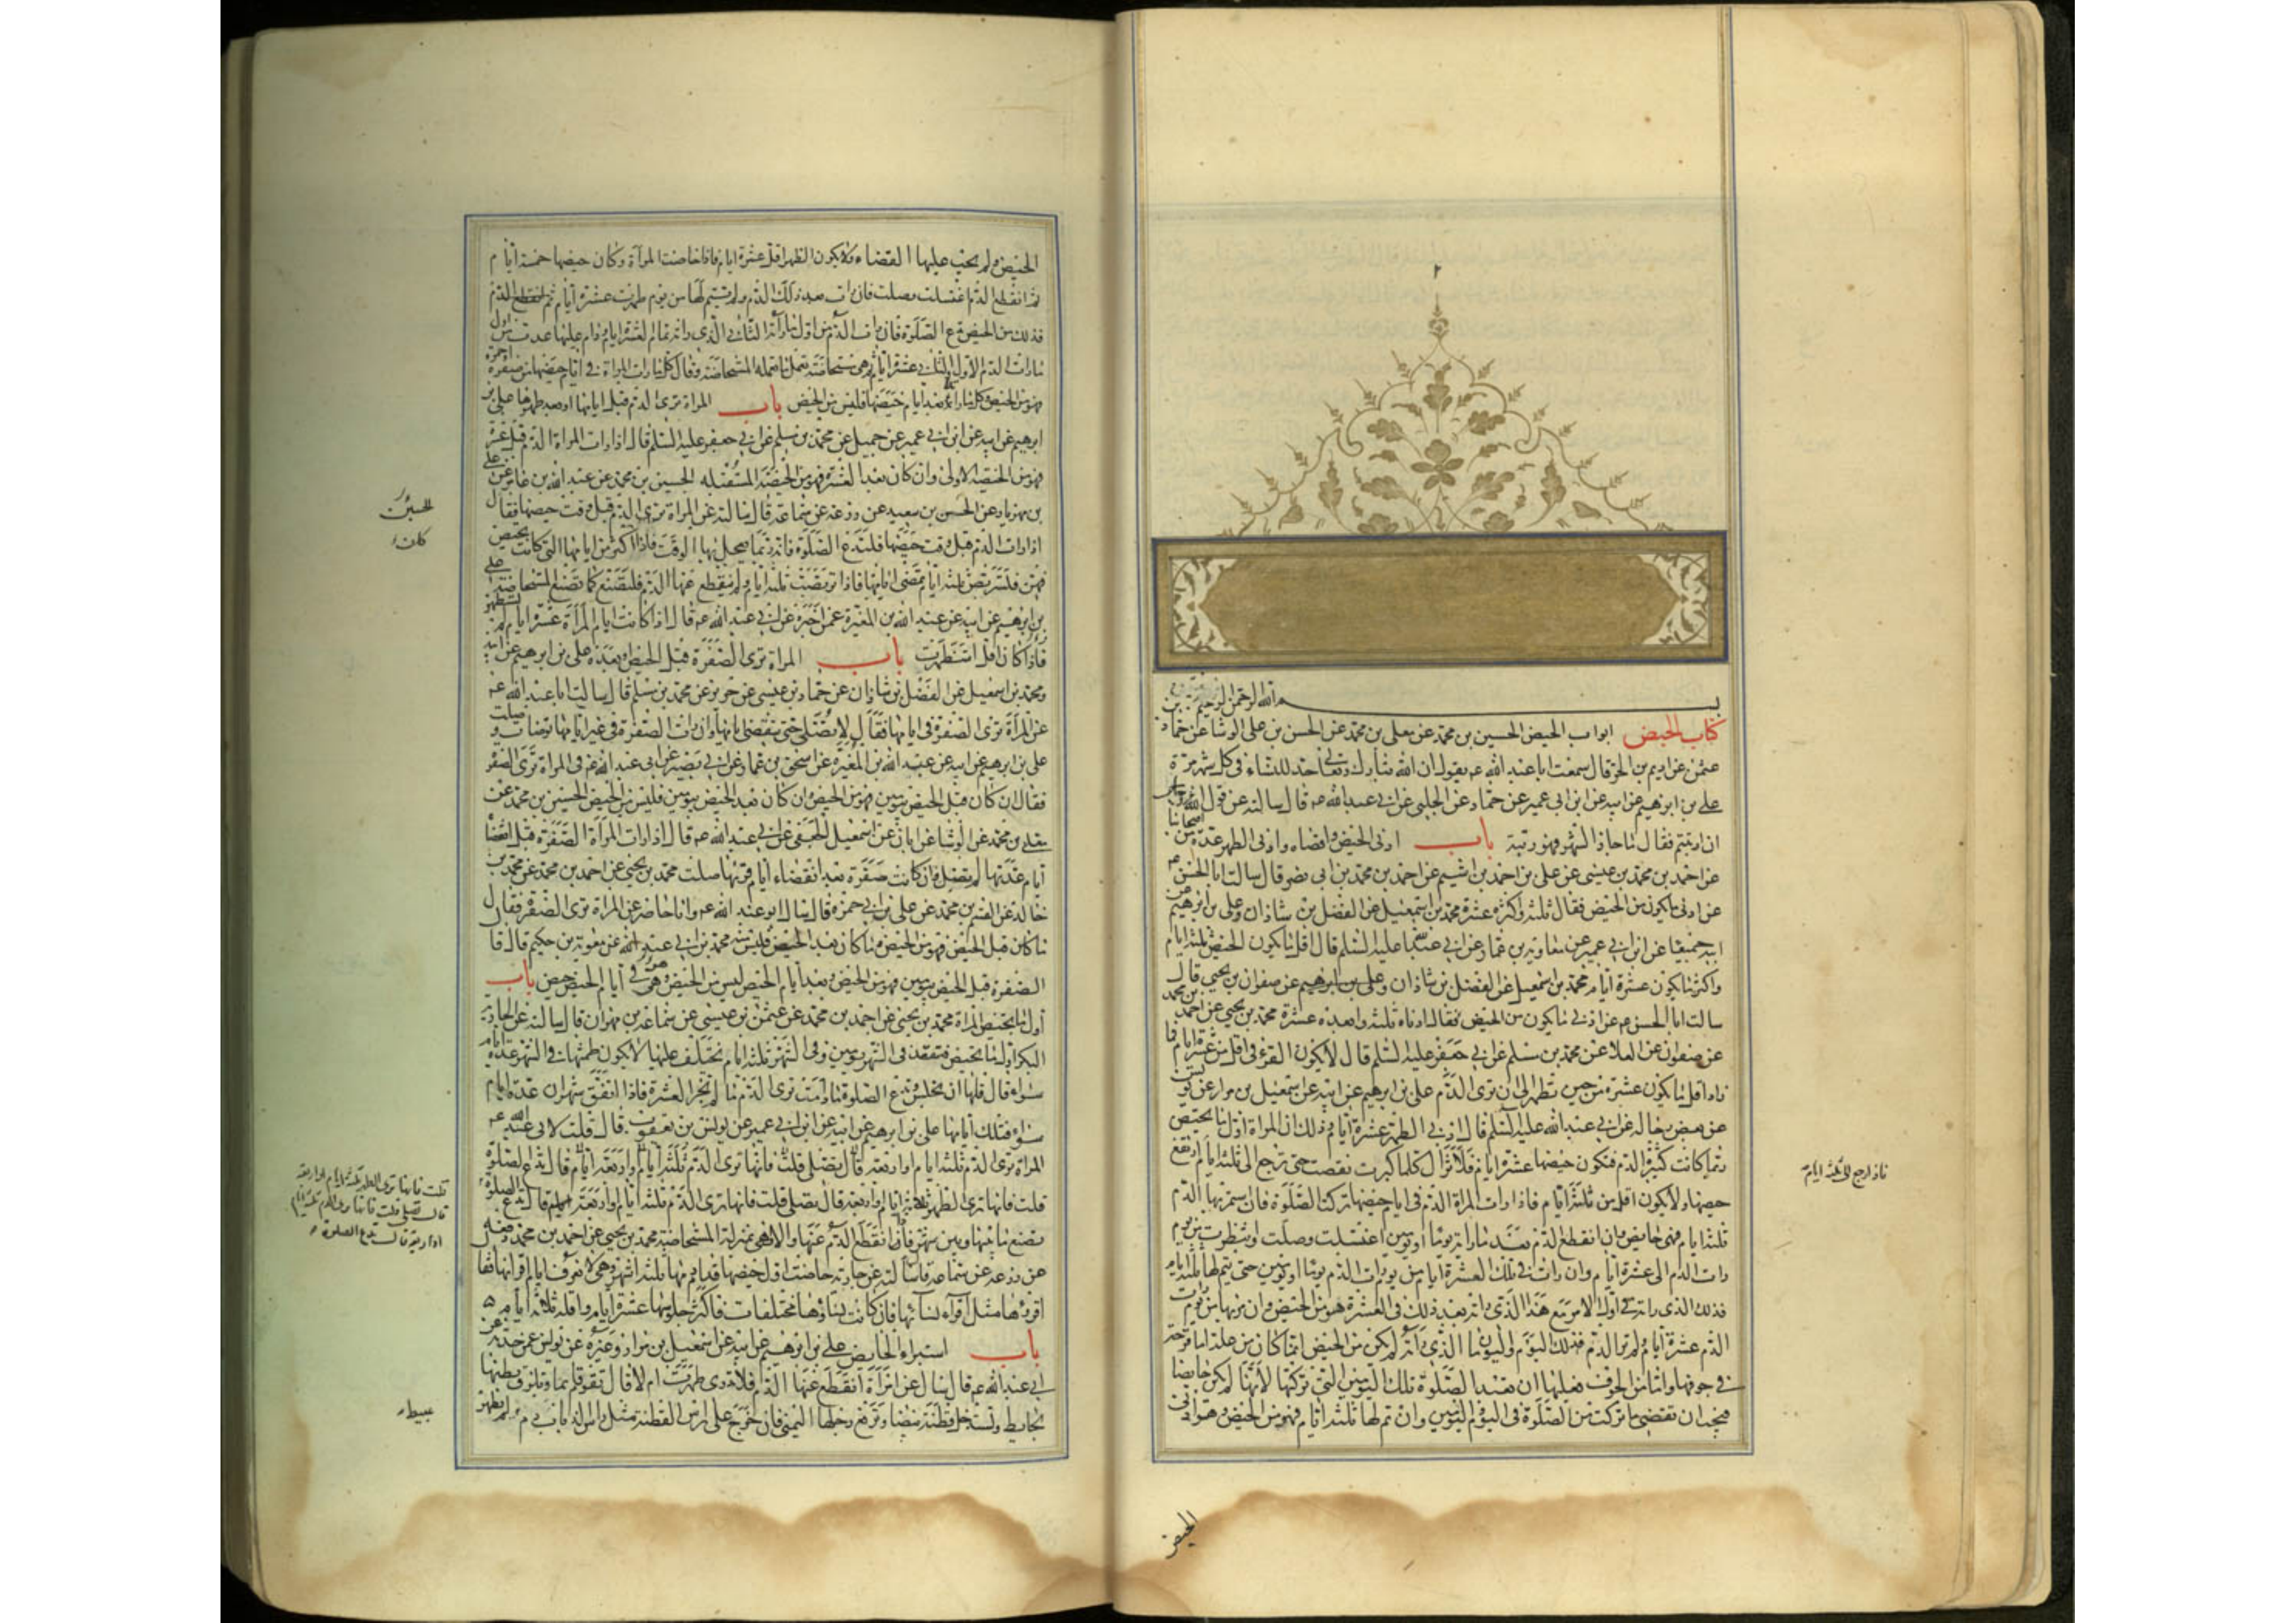 بسم الله الرحمن الرحيم
كتاب الحيض ابواب الحيض الحسين بن محمد عن معلى بن محمد عن الحسن بن على الوشا عن حماد بن
عثمن عن اديم بن الحر قال سمعت ابا عبد الله عه يقول ان الله تبارك وتعا حد للنساء فى كل شهر مرة
على بن ابرهيم عن ابيه عن ابن ابى عمير عن حماد عن الحلبى عن ابى عبد الله عه قال سالته عن قول الله
ان ارتبتم فقال ما جاز الشهر فهو ريبة باب ادنى الحيض واقصاه وادنى الطهر عدة من اصحابنا
عن احمد بن محمد بن عيسى عن على بن احمد بن اشيم عن احمد بن محمد بن ابى نصر قال سالت ابا الحسن
عن ادنى ما يكون من الحيض فقال ثلثة واكثره عشرة محمد بن اسمعيل عن الفضل بن شاذان وعلى بن ابرهيم عن
ابيه جميعا عن ابن ابى عمير عن معاوية بن عمار عن ابى عبد الله عليه السلم قال اقل ما يكون الحيض ثلثة ايام
واكثر ما يكون عشرة ايام محمد بن اسمعيل عن الفضل بن شاذان وعلى بن ابرهيم عن صفوان بن يحيى قال
سالت ابا الحسن عن ادنى ما يكون من الحيض فقال ادناه ثلثة وابعده عشرة محمد بن يحيى عن احمد بن محمد
عن صفوان عن العلا عن محمد بن مسلم عن ابى جعفر عليه السلم قال لا يكون القرء فى اقل من عشرة ايام فما
زاد اقل ما يكون عشرة من حين تطهر الى ان ترى الدم على بن ابرهيم عن ابيه عن اسمعيل بن مرار عن يونس
عن بعض رجاله عن ابى عبد الله عليه السلم قال ادنى الطهر عشرة ايام وذلك ان المراة اول ما تحيض
ربما كانت كثيرة الدم فيكون حيضها عشرة ايام فلا تزال كلما كبرت نقصت حتى ترجع الى ثلثة ايام ارتفع
حيضها ولا يكون اقل من ثلثة ايام فاذا رات المراة الدم فى ايام حيضها تركت الصلوة فان استمر بها الدم
ثلثة ايام فهى حايض وان انقطع الدم بعد ما راته يوما او يومين اغتسلت وصلت وانتظرت من يوم
رات الدم الى عشرة ايام وان رات فى تلك العشرة ايام من يوم رات الدم يوما او يومين حتى يتم لها ثلثة ايام
فذلك الذى راته فى اول الامر مع هذا الذى راته بعد ذلك فى العشرة هو من الحيض وان مر بها من يوم رات
الدم عشرة ايام ولم تر الدم فذلك اليوم واليومان الذى راته لم يكن من الحيض انما كان من علة اما قرحة
فى جوفها واما من الجوف فعليها ان تعيد الصلوة تلك اليومين التى تركتها لانها لم تكن حايضا
فيجب ان تقضى ما تركت من الصلوة فى اليوم واليومين وان تم لها ثلثة ايام فهو من الحيض وهو ادنى
فاذا رجع الى ثلثة ايام
الحيض
الحيض ولم يجب عليها القضاء ولا يكون الطهر اقل عشرة ايام فاذا حاضت المراة وكان حيضها خمسة ايام
ثم انقطع الدم اغتسلت وصلت فان رات بعد ذلك الدم ولم يتم لها من يوم طهرت عشرة ايام
فذلك من الحيض تدع الصلوة فان رات الدم من اول ما راته الثانى الذى راته تمام العشرة ايام ودام عليها عدت من اول
ما رات الدم الاول والثانى عشرة ايام ثم هى مستحاضة تعمل ما تعمله المستحاضة وقال كل ما رات المراة فى ايام حيضها من صفرة او حمرة
فهو من الحيض وكل ما راته بعد ايام حيضها فليس من الحيض باب المراة ترى الدم قبل ايامها او بعد طهرها على بن
ابرهيم عن ابيه عن ابن ابى عمير عن جميل عن محمد بن مسلم عن ابى جعفر عليه السلم قال اذا رات المراة الدم قبل عشرة
فهو من الحيضة الاولى وان كان بعد العشرة فهو من الحيضة المستقبله الحسين بن محمد عن عبد الله بن عامر عن على
بن مهزيار عن الحسن بن سعيد عن زرعة عن سماعة قال سالته عن المراة ترى الدم قبل وقت حيضها فقال
اذا رات الدم قبل وقت حيضها فلتدع الصلوة فانه ربما تعجل بها الوقت فاذا اكثر من ايامها التى كانت تحيض
فيهن فلتتربص ثلثة ايام بعد ما تمضى ايامها فاذا تربصت ثلثة ايام ولم ينقطع عنها الدم فلتصنع كما تصنع المستحاضة على
بن ابرهيم عن ابيه عن عبد الله بن المغيرة عمن اخبره عن ابى عبد الله عه قال اذا كانت ايام المراة عشرة ايام لم تستظهر
فاذا كان اقل استظهرت باب المراة ترى الصفرة قبل الحيض او بعده على بن ابرهيم عن ابيه
ومحمد بن اسمعيل عن الفضل بن شاذان عن حماد بن عيسى عن حريز عن محمد بن مسلم قال سالت ابا عبد الله عه
عن المراة ترى الصفرة فى ايامها فقال لا تصلى حتى تنقضى ايامها وان رات الصفرة فى غير ايامها توضات وصلت
على بن ابرهيم عن ابيه عن عبد الله بن المغيرة عن اسحق بن عمار عن ابى بصير عن ابى عبد الله عه فى المراة ترى الصفرة
فقال ان كان قبل الحيض بيومين فهو من الحيض وان كان بعد الحيض بيومين فليس من الحيض الحسين بن محمد عن
معلى بن محمد عن الوشا عن ابان عن اسمعيل الجعفى عن ابى عبد الله عه قال اذا رات المراة الصفرة قبل انقضا
ايام عدتها لم تصل وان كانت صفرة بعد انقضاء ايام قرئها صلت محمد بن يحيى عن احمد بن محمد عن محمد بن
خالد عن القسم بن محمد عن على بن ابى حمزة قال سال ابو عبد الله عه وانا حاضر عن المراة ترى الصفرة فقال
ما كان قبل الحيض فهو من الحيض وما كان بعد الحيض فليس منه محمد بن ابى عبد الله عن معوية بن حكيم قال قا
الصفرة قبل الحيض بيومين فهو من الحيض وبعد ايام الحيض ليس من الحيض وهى فى ايام الحيض حيض باب
اول ما تحيض المراة محمد بن يحيى عن احمد بن محمد عن عثمن بن عيسى عن سماعة بن مهران قال سالته عن الجارية
البكر اول ما تحيض فتقعد فى الشهر يومين وفى الشهر ثلثة ايام يختلف عليها لا يكون طمثها فى الشهر عدة ايام
سواء قال فلها ان تجلس وتدع الصلوة ما دامت ترى الدم ما لم تجز العشرة فاذا اتفق شهران عدة ايام
سواء فتلك ايامها على بن ابرهيم عن ابيه عن ابن ابى عمير عن يونس بن يعقوب قال قلت لابى عبد الله عه
المراة ترى الدم ثلثة ايام او اربعة قال تصلى قلت فانها ترى الدم ثلثة ايام او اربعة ايام قال تدع الصلوة
قلت فانها ترى الطهر ثلثة ايام او اربعة قال تصلى قلت فانها ترى الدم ثلثة ايام او اربعة ايام قال تدع الصلوة
تصنع ما بينها وبين شهر فان انقطع الدم عنها والا فهى بمنزلة المستحاضة محمد بن يحيى عن احمد بن محمد رفعه
عن زرعه عن سماعة قال سالته عن جارية حاضت اول حيضها فدام دمها ثلثة اشهر وهى لا تعرف ايام اقرائها فقا
اقرؤها مثل اقراء نسائها فان كانت نساؤها مختلفات فاكثر جلوسها عشرة ايام واقله ثلاثة ايام
باب استبراء الحايض على بن ابرهيم عن ابيه عن اسمعيل بن مرار وغيره عن يونس عمن حدثه عن
ابى عبد الله عه قال سال عن امراة انقطع عنها الدم فلا تدرى طهرت ام لا قال تقوم قائما وتلزق بطنها
بحايط وتستدخل قطنة بيضا وترفع رجلها اليمنى فان خرج على راس القطنة مثل راس الذباب دم لم تطهر
الحسين
كان
قلت فانها ترى الطهر ثلثة ايام او اربعة
قال تصلى قلت فانها ترى الدم ثلثة ايام
او اربعة قال تدع الصلوة
عبيطا